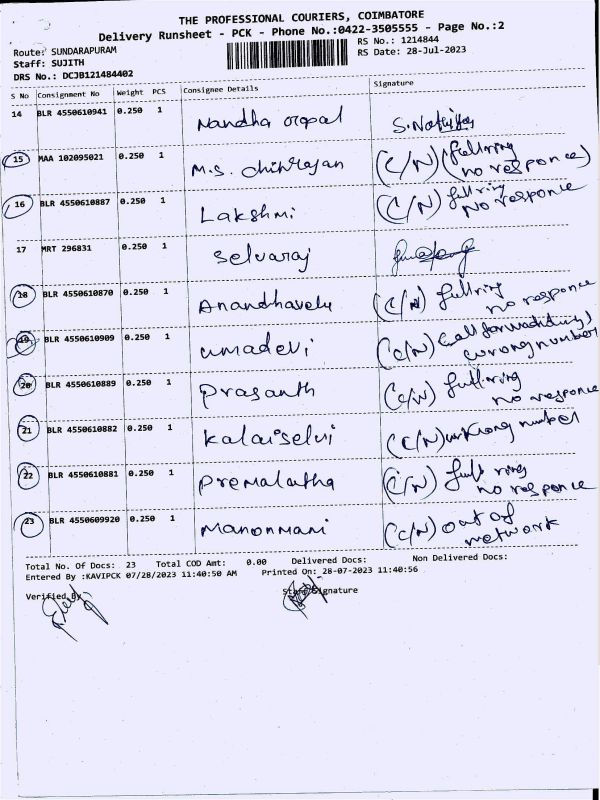 THE PROFESSIONAL COURIERS, COIMBATORE
Delivery Runsheet - PCK - Phone No.:0422-3505555 - Page No.:2
Route: SUNDARAPURAM RS No.: 1214844
Staff: SUJITH RS Date: 28-Jul-2023
DRS No.: DCJB121484402
S No Consignment No Weight PCS Consignee Details Signature
14 BLR 4550610941 0.250 1 Nandha Gopal
15 MAA 102095021 0.250 1 M.S. (C/N) (full ring
no response)
16 BLR 4550610887 0.250 1 Lakshmi (C/N) full ring
NO response
17 MRT 296831 0.250 1 Selvaraj
18 BLR 4550610870 0.250 1 Anandhavelu (C/N) full ring
no response
19 BLR 4550610909 0.250 1 umadevi (C/N) Call
wrong number
20 BLR 4550610889 0.250 1 Prasanth (C/N) full ring
no response
21 BLR 4550610882 0.250 1 Kalaiselvi (C/N) number
22 BLR 4550610881 0.250 1 Premalatha (C/N) full ring
no response
23 BLR 4550609920 0.250 1 Manonmani (C/N) out of
network
Total No. Of Docs: 23 Total COD Amt: 0.00 Delivered Docs: Non Delivered Docs:
Entered By :KAVIPCK 07/28/2023 11:40:50 AM Printed On: 28-07-2023 11:40:56
Verified By Staff Signature